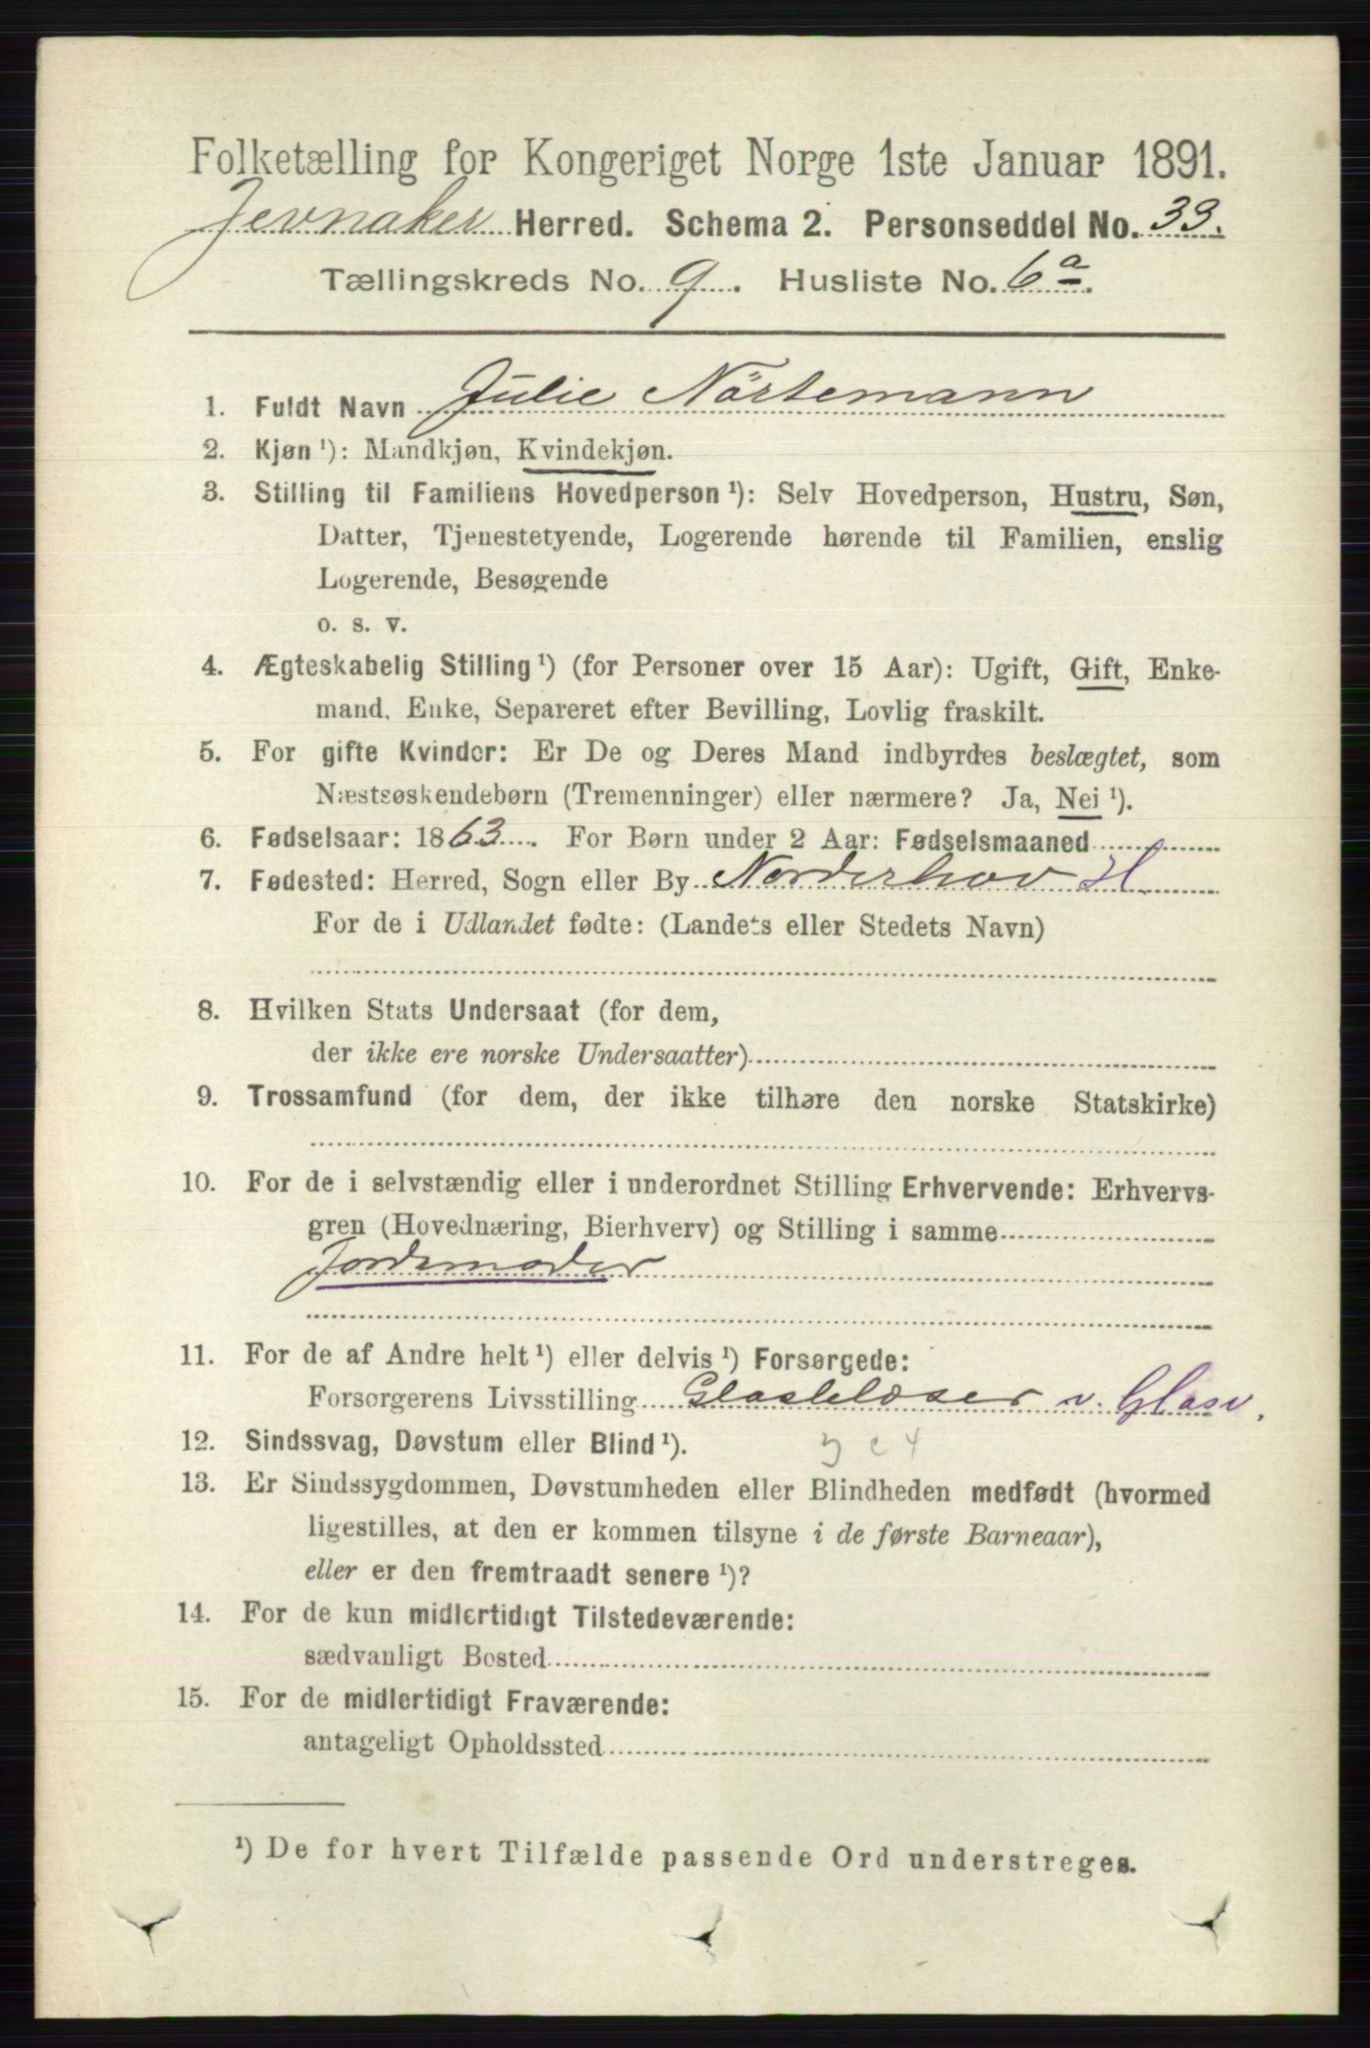 Folketælling for Kongeriget Norge 1ste Januar 1891.
Jevnaker Herred. Schema 2. Personseddel No. 33.
Tællingskreds No. 9. Husliste No. 6a.
1. Fuldt Navn Julie Nörtemann
2. Kjøn ¹): Mandkjøn, Kvindekjøn.
3. Stilling til Familiens Hovedperson ¹): Selv Hovedperson, Hustru, Søn,
Datter, Tjenestetyende, Logerende hørende til Familien, enslig
Logerende, Besøgende
o. s. v.
4. Ægteskabelig Stilling ¹) (for Personer over 15 Aar): Ugift, Gift, Enke-
mand, Enke, Separeret efter Bevilling, Lovlig fraskilt.
5. For gifte Kvinder: Er De og Deres Mand indbyrdes beslægtet, som
Næstsøskendebørn (Tremenninger) eller nærmere? Ja, Nei ¹).
6. Fødselsaar: 1863. For Børn under 2 Aar: Fødselsmaaned
7. Fødested: Herred, Sogn eller By Norderhov H.
For de i Udlandet fødte: (Landets eller Stedets Navn)
8. Hvilken Stats Undersaat (for dem,
der ikke ere norske Undersaatter)
9. Trossamfund (for dem, der ikke tilhøre den norske Statskirke)
10. For de i selvstændig eller i underordnet Stilling Erhvervende: Erhvervs-
gren (Hovednæring, Bierhverv) og Stilling i samme
Jordemoder
11. For de af Andre helt ¹) eller delvis ¹) Forsørgede:
Forsørgerens Livsstilling Glasblæser v. Glasv.
12. Sindssvag, Døvstum eller Blind ¹).
13. Er Sindssygdommen, Døvstumheden eller Blindheden medfødt (hvormed
ligestilles, at den er kommen tilsyne i de første Barneaar),
eller er den fremtraadt senere ¹)?
14. For de kun midlertidigt Tilstedeværende:
sædvanligt Bosted
15. For de midlertidigt Fraværende:
antageligt Opholdssted
¹) De for hvert Tilfælde passende Ord understreges.